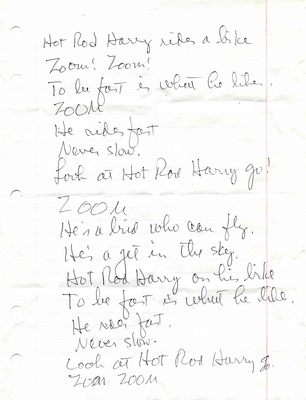 Hot Rod Harry rides a bike
Zoom! Zoom!
To be fast is what he likes.
Zoom
He rides fast
Never slow.
Look at Hot Rod Harry go!
Zoom
He's a brid who can fly.
He's a jet in the sky.
Hot Rod Harry on his bike
To be fast is what he like.
He rides fast.
Never slow.
Look at Hot Rod Harry go.
Zoom Zoom